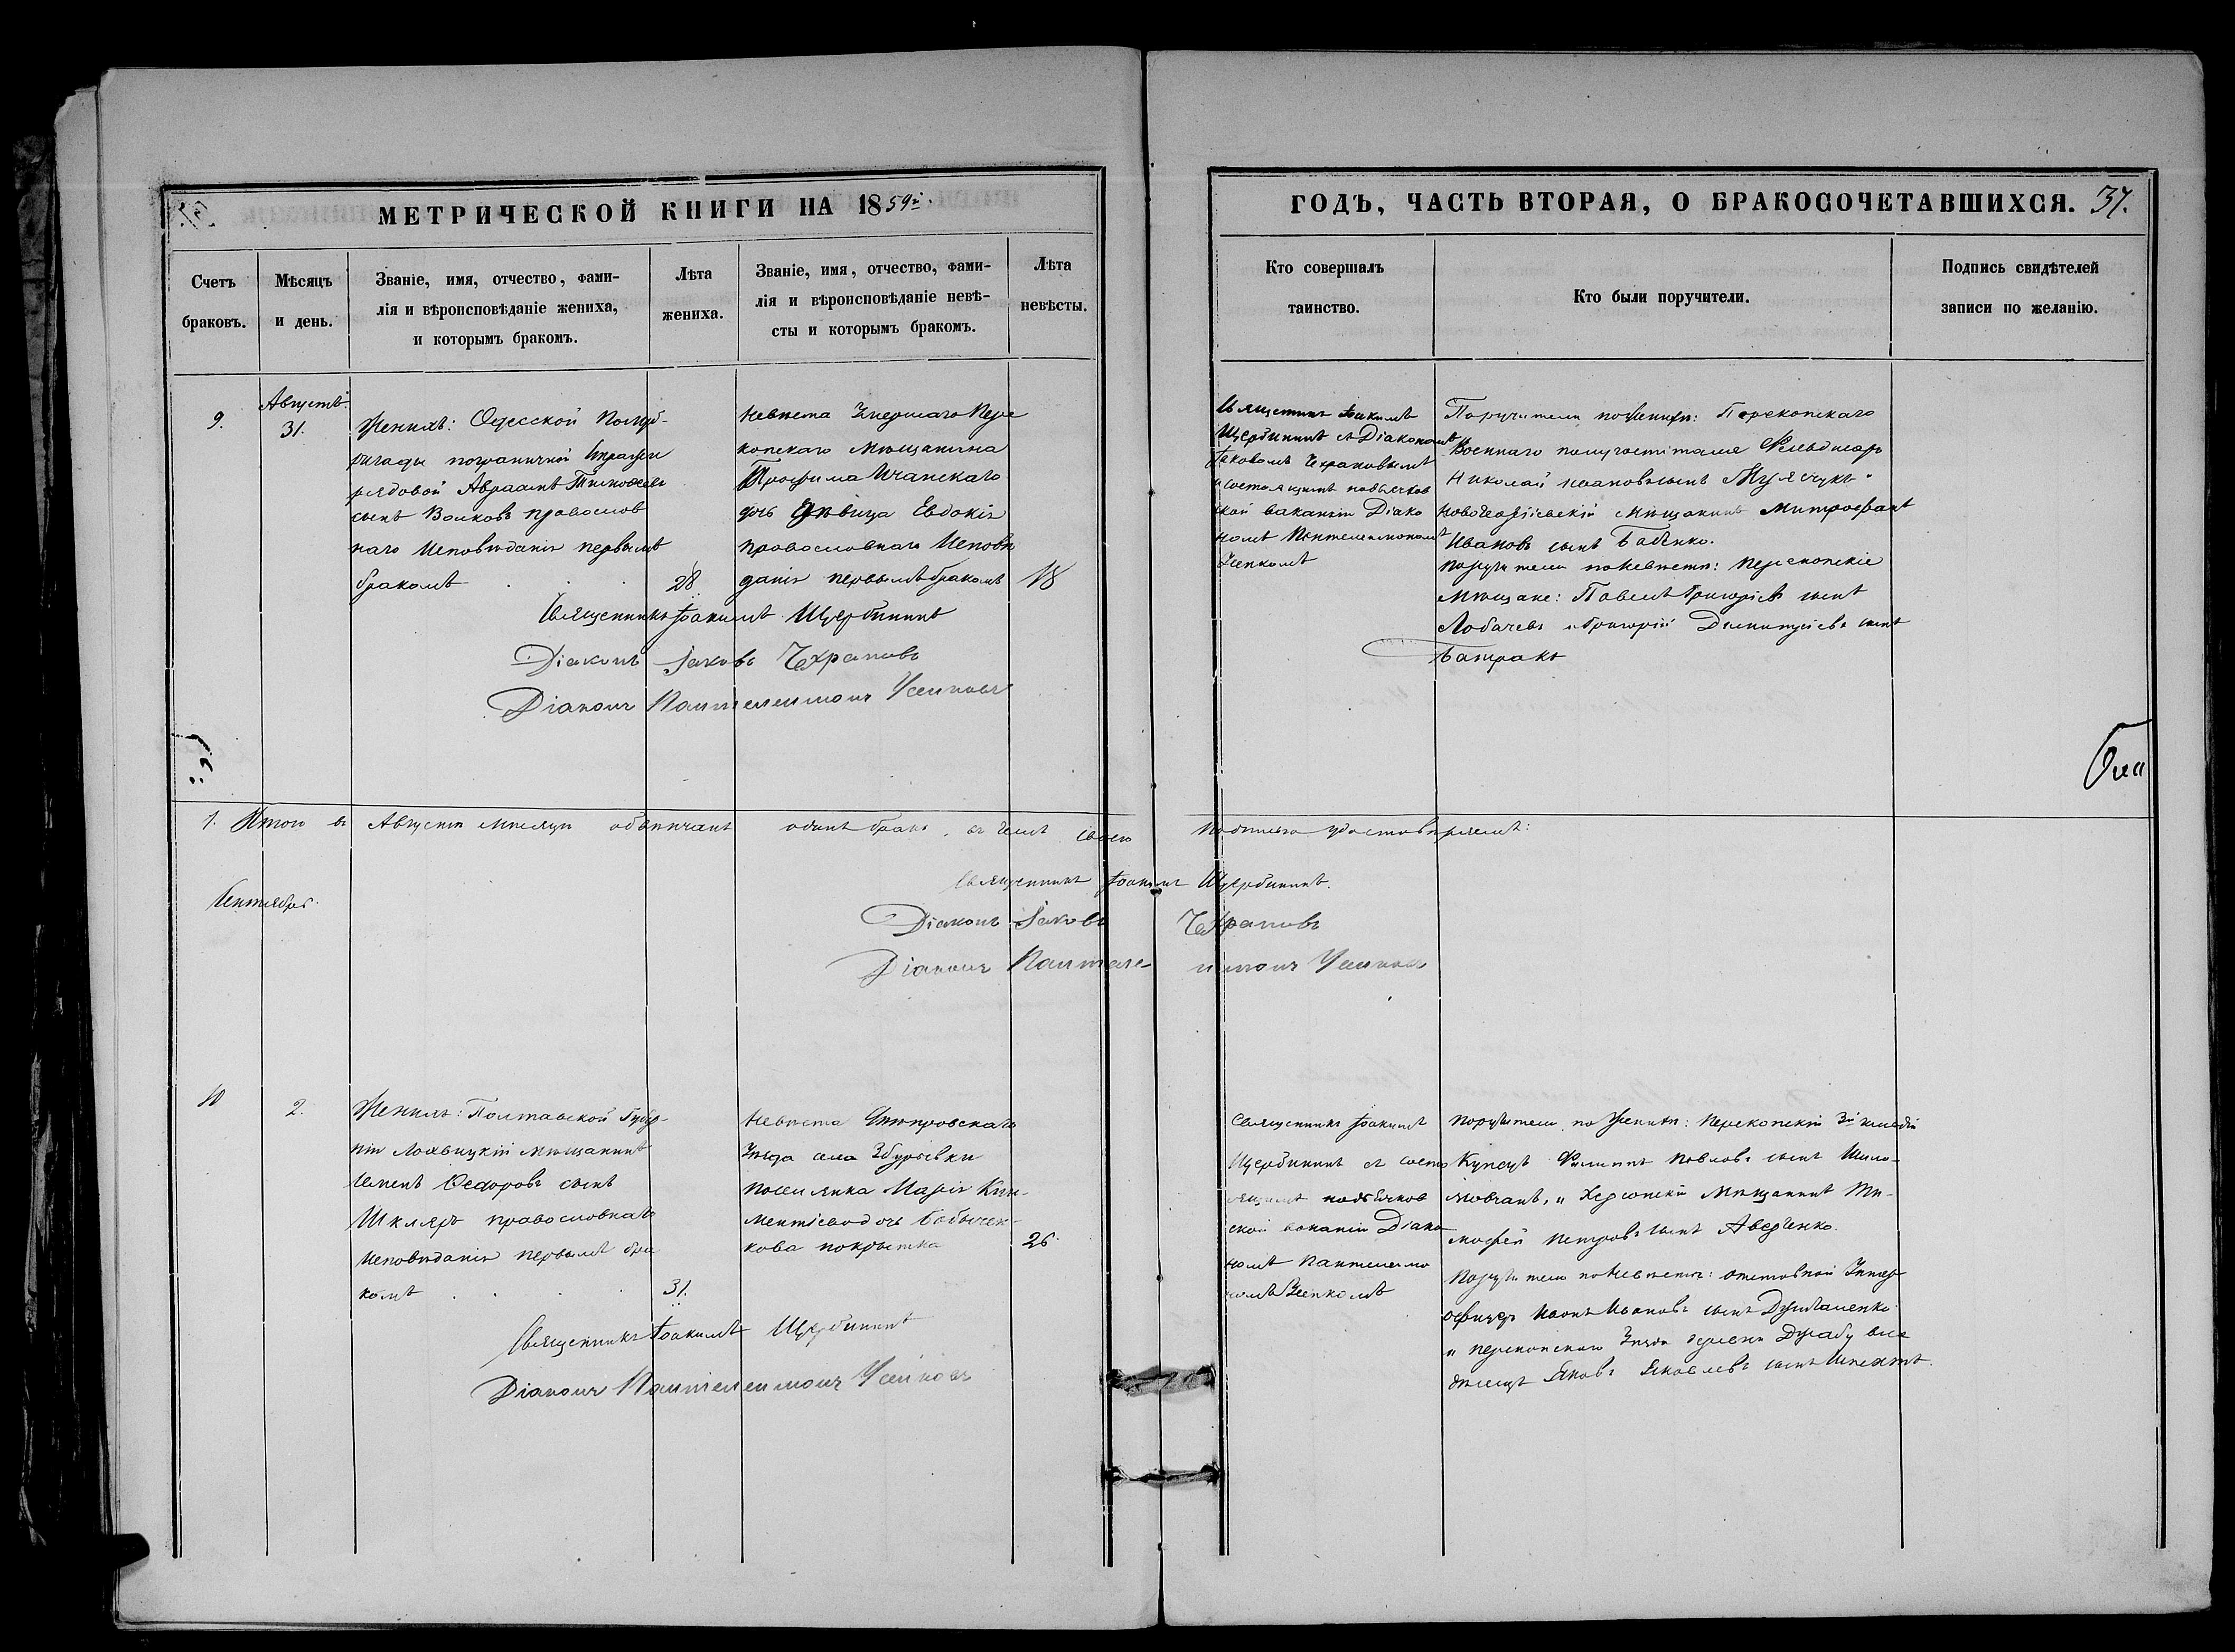 МЕТРИЧЕСКОЙ КНИГИ НА 1859й.
ГОДЪ, ЧАСТЬ ВТОРАЯ, О БРАКОСОЧЕТАВШИХСЯ. 37.
Счетъ
браковъ.
Мѣсяцъ
и день.
Званіе, имя, отчество, фами-
лія и вѣроисповѣданіе жениха,
и которымъ бракомъ.
Лѣта
жениха.
Званіе, имя, отчество, фами-
лія и вѣроисповѣданіе невѣ-
сты и которымъ бракомъ.
Лѣта
невѣсты.
Кто совершалъ
таинство.
Кто были поручители.
Подпись свидѣтелей
записи по желанію.
9.
Августъ.
31.
Женихъ: Одесской Полуб-
ригады пограничной Стражи
рядовой Авраамъ Тимофеевъ
сынъ Волковъ православ
наго Исповѣданія первымъ
бракомъ
28
Невѣста Умершаго Пере
копскаго Мѣщанина
Трофима
дочь Дѣвица Евдокія
православнаго Исповѣ
данія первымъ бракомъ
18
Священникъ Іоакимъ
Щербининъ съ Діакономъ
Іаковомъ Чехрановымъ
и состоящимъ на дьячков
ской ваканіи Діако
номъ Пантелеимономъ
Поручители по женихѣ: Перекопскаго
Военнаго полугоспиталя Фельдшеръ
Николай Ивановъ сынъ
Новогеоргіевскій Мѣщанинъ Митрофанъ
Ивановъ сынъ Бабенко.
поручители по Невѣстѣ: Перекопскіе
Мѣщане: Павелъ Григорьевъ сынъ
Лобачевъ и Григорій Димитріевъ сынъ
Батракъ
Священникъ Іоакимъ Щербининъ
Діаконъ Іаковъ Чехрановъ
Діаконъ Пантелеимонъ Усенковъ
1. Итого въ Августѣ мѣсяцѣ обвѣнчанъ одинъ бракъ, въ чемъ своею подписью удостовѣряемъ:
Священникъ Іоакимъ Щербининъ.
Діаконъ Іаковъ Чехрановъ
Діаконъ Пантеле-имонъ Усенковъ
Сентябрь.
10
2.
Женихъ: Полтавской Губер-
ніи Лохвицкій мѣщанинъ
Семенъ Ѳедоровъ сынъ
Шкляръ православнаго
исповѣданія первымъ бра
комъ
31.
Невѣста Днѣпровскаго
Уѣзда села Збурьевки
поселянка Марія Кли-
ментіева дочь
кова покрытка
26.
Священникъ Іоакимъ
Щербининъ съ состо
ящимъ на дьячков
ской ваканіи Діако
номъ Пантелеимо
номъ
поручители по женихѣ: Перекопскій 3й гильдіи
Купецъ Филиппъ Павловъ сынъ Шило-
и Херсонскій мѣщанинъ Ти-
мофей Петровъ сынъ Аверченко.
Поручители по Невѣстѣ: отставной Унтеръ
офицеръ Иванъ Ивановъ сынъ
и перекопскаго Уѣзда деревни
Яковъ Яковлевъ сынъ
Священникъ Іоакимъ Щербининъ
Діаконъ Пантелеимонъ Усенковъ